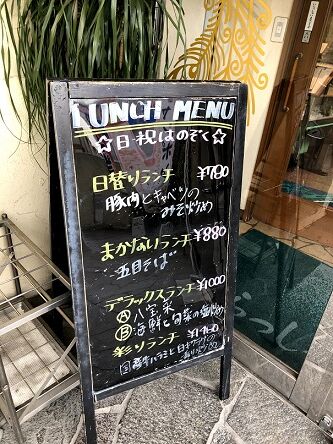 LUNCH MENU
☆日・祝はのぞく☆
日替りランチ ¥780
豚肉とキャベツの
みそ炒め
まかないランチ ¥880
"五目そば"
デラックスランチ ¥1000
Ⓐ 八宝菜
Ⓑ 海鮮と旬菜の塩炒め
彩りランチ